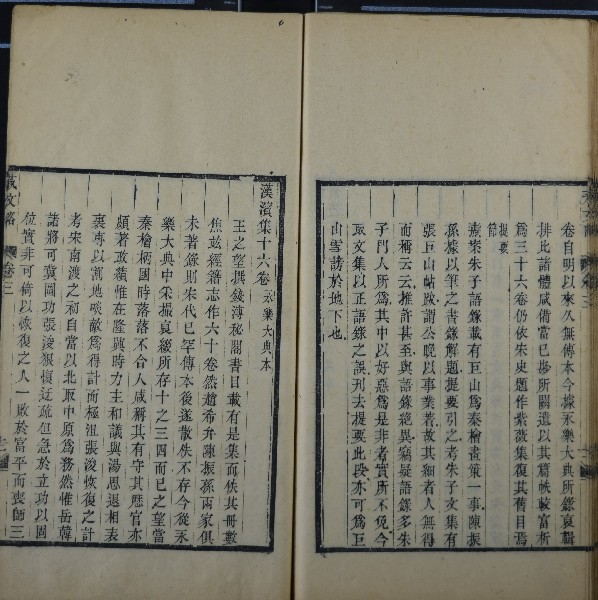 卷自明以來久無傳本今據永樂大典所錄裒輯
排比諸體咸備當已掺所闕遺以其篇帙較富析
爲三十六卷仍依朱史題作紫薇集復其舊目焉
節提要
壽案朱子語錄載有巨山爲秦檜畫策一事陳振
孫據以筆之書錄解題提要引之考朱子文集有
張巨山帖跋謂公晩以事業著故其細者人無得
而稱云云推許甚至與語錄絕異竊疑語錄多朱
子門人所爲其中以好惡爲是非者實所不免今
取文集以正語錄之誤刋去提要此段亦可爲巨
山雪謗於地下也
漢濱集十六卷 永樂大典本
王之望撰錢溥秘閣書目載有是集而佚其冊數
焦竑經籍志作六十卷然趙希弁陳振孫兩家俱
未著錄則宋代已罕傳本後遂散佚不存今從永
樂大典中采掇裒綴所存十之三四而已之望當
秦檜柄國時落落不合人咸稱其有守其歷官亦
頗著政績惟在隆興時力主和議與湯思退相表
裏專以割地啖敵爲得計而極沮張浚恢復之計
考宋南渡之初自當以北取中原爲務然惟岳韓
諸將可冀圖功張浚狠愎迂疏但急於立功以固
位實非可倚以恢復之人一敗於富平而喪師三
卷三